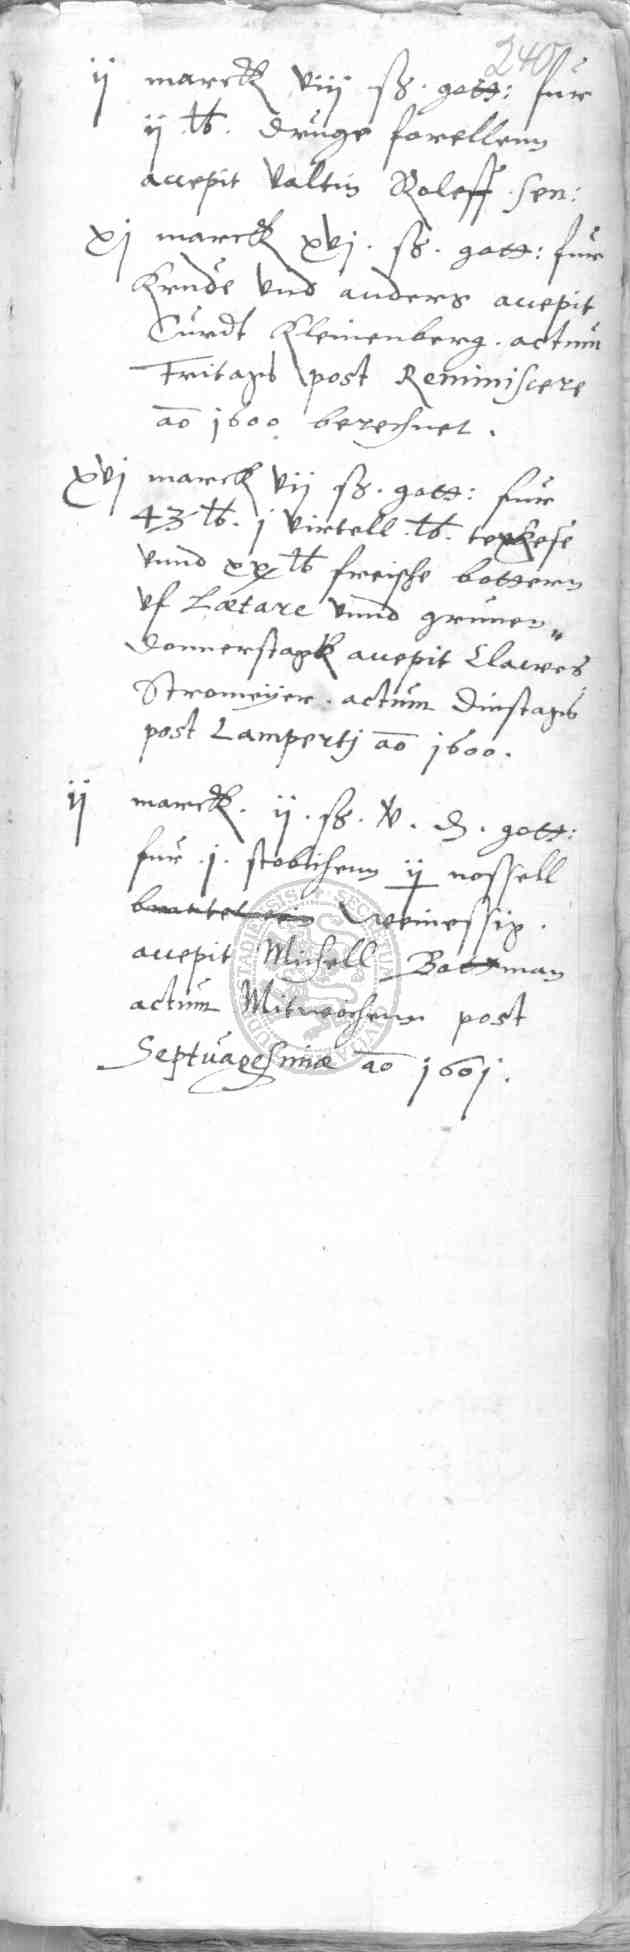 240
ij marck viij ß. gott: fur
ij lb. druge forellenn
accepit Valtin Roleff sen:
xj marck xvj. ß. gott: fur
Krude vnd anders accepit
Curdt Kleinenberg. actum
Fritags post Reminiscere
ao 1600 berechnet.
xvj marck vij ß. gott: fur
43 lb. j virtell lb. kese
vnnd xx lb freische bottern
vf Lætare vnnd grunen„
donnerstagk accepit Clawes
Stromeyer. actum Dinstags
post Lampertj ao 1600.
ij marck. ij. ß. v. d. gott:
fur. j. stobichenn ij nossell
weinessig.
accepit Michell Bottman
actum Mitwochenn post
Septuagesimæ ao 1601.